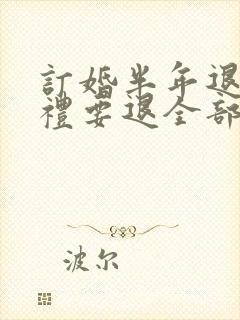 訂婚半年退
禮要退全部
波尔